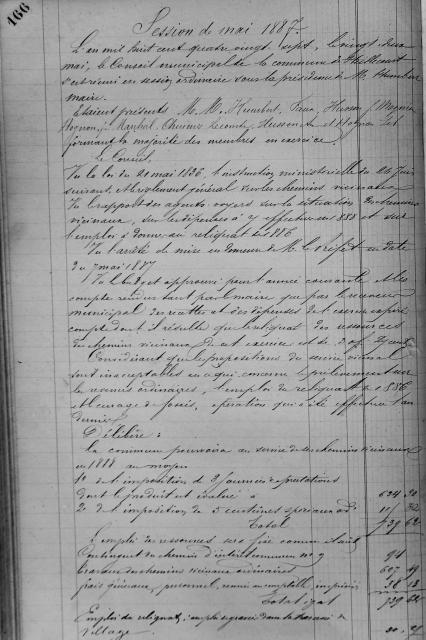 166
Session de mai 1887.
L'an mil huit cent quatre vingt sept, le vingt deux
mai, le Conseil municipal de la commune de
s'est réuni en session ordinaire sous la présidence de M. Humbert
maire.
Etaient présents M.M. Humbert, Husson,
Lecomte, et
formant la majorité des membres en exercice.
Le Conseil,
Vu la loi du 21 mai 1836, l'instruction ministérielle du 24 Juin
suivant, et le règlement général sur les chemins vicinaux
Vu le rapport des agents voyers sur la situation des chemins
vicinaux, sur les dépenses à y effectuer en 1888 et sur
l'emploi à donner au reliquat de 1886
Vu l'arrêté de mise en demeure de M. le Préfet en date
du 7 mai 1887
Vu le budget approuvé pour l'année courante et les
comptes rendus tant par le maire que par le receveur
municipal des recettes et des dépenses de l'exercice expiré
compte dont il résulte que le reliquat des ressources
des chemins vicinaux de cet exercice est de
Considérant que les propositions du service vicinal
sont inacceptables en ce qui concerne le prélèvement sur
les revenus ordinaires, l'emploi du reliquat de 1886
et curage de fossés, opération qui a été effectuée l'an
dernier
Délibère :
La commune pourvoira au service des chemins vicinaux
en 1888 au moyen
1° de l'imposition de 3 journées de prestations
dont le produit est évalué à 624 30
2° de l'imposition de 5 centimes spéciaux ord. 115 32
Total 739 62
L'emploi des ressources sera fixé comme il suit
Contingent du chemin d'intérêt commun n° 9 94
Travaux des chemins vicinaux ordinaires 607 49
frais généraux, personnel, remise au comptable, imprimés 38 13
Total égal 739 62
Emploi du reliquat,
Village